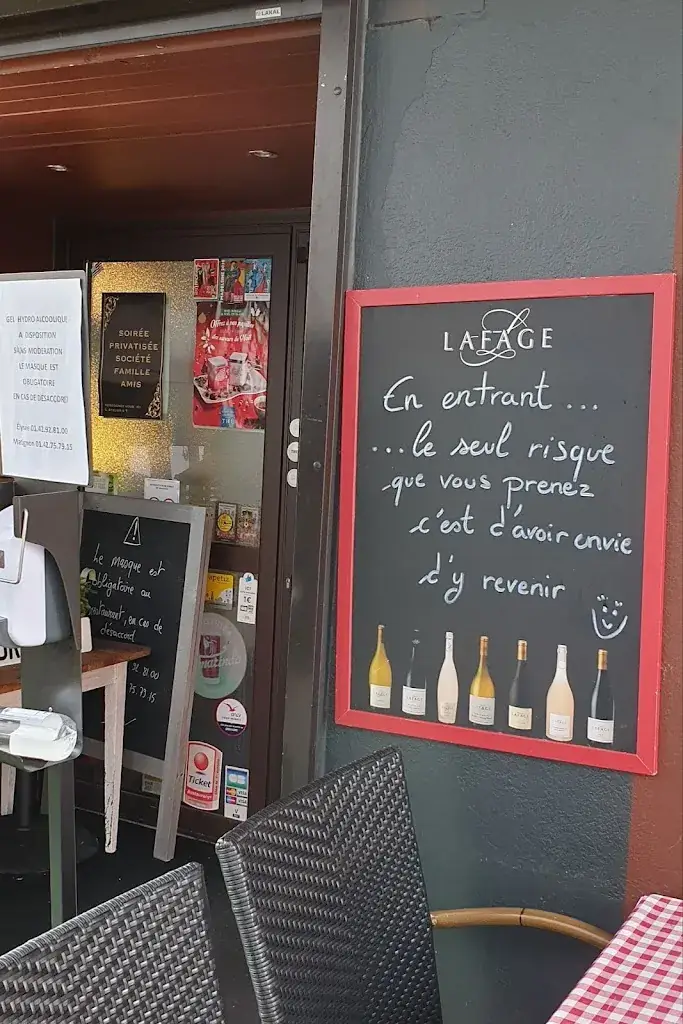 LAKAL
GEL HYDRO ALCOOLIQUE
A DISPOSITION
SANS MODERATION
LE MASQUE EST
OBLIGATOIRE
EN CAS DE DÉSACCORD!
Élysée 01.42.92.81.00
Matignon 01.42.75.75.15
SOIRÉE
PRIVATISÉE
SOCIÉTÉ
FAMILLE
AMIS
Le masque est
obligatoire au
restaurant, en cas de
désaccord
81.00
75.15
1€
Ticket
Restaurant
VISA
LAFAGE
En entrant ...
... le seul risque
que vous prenez
c'est d'avoir envie
d'y revenir